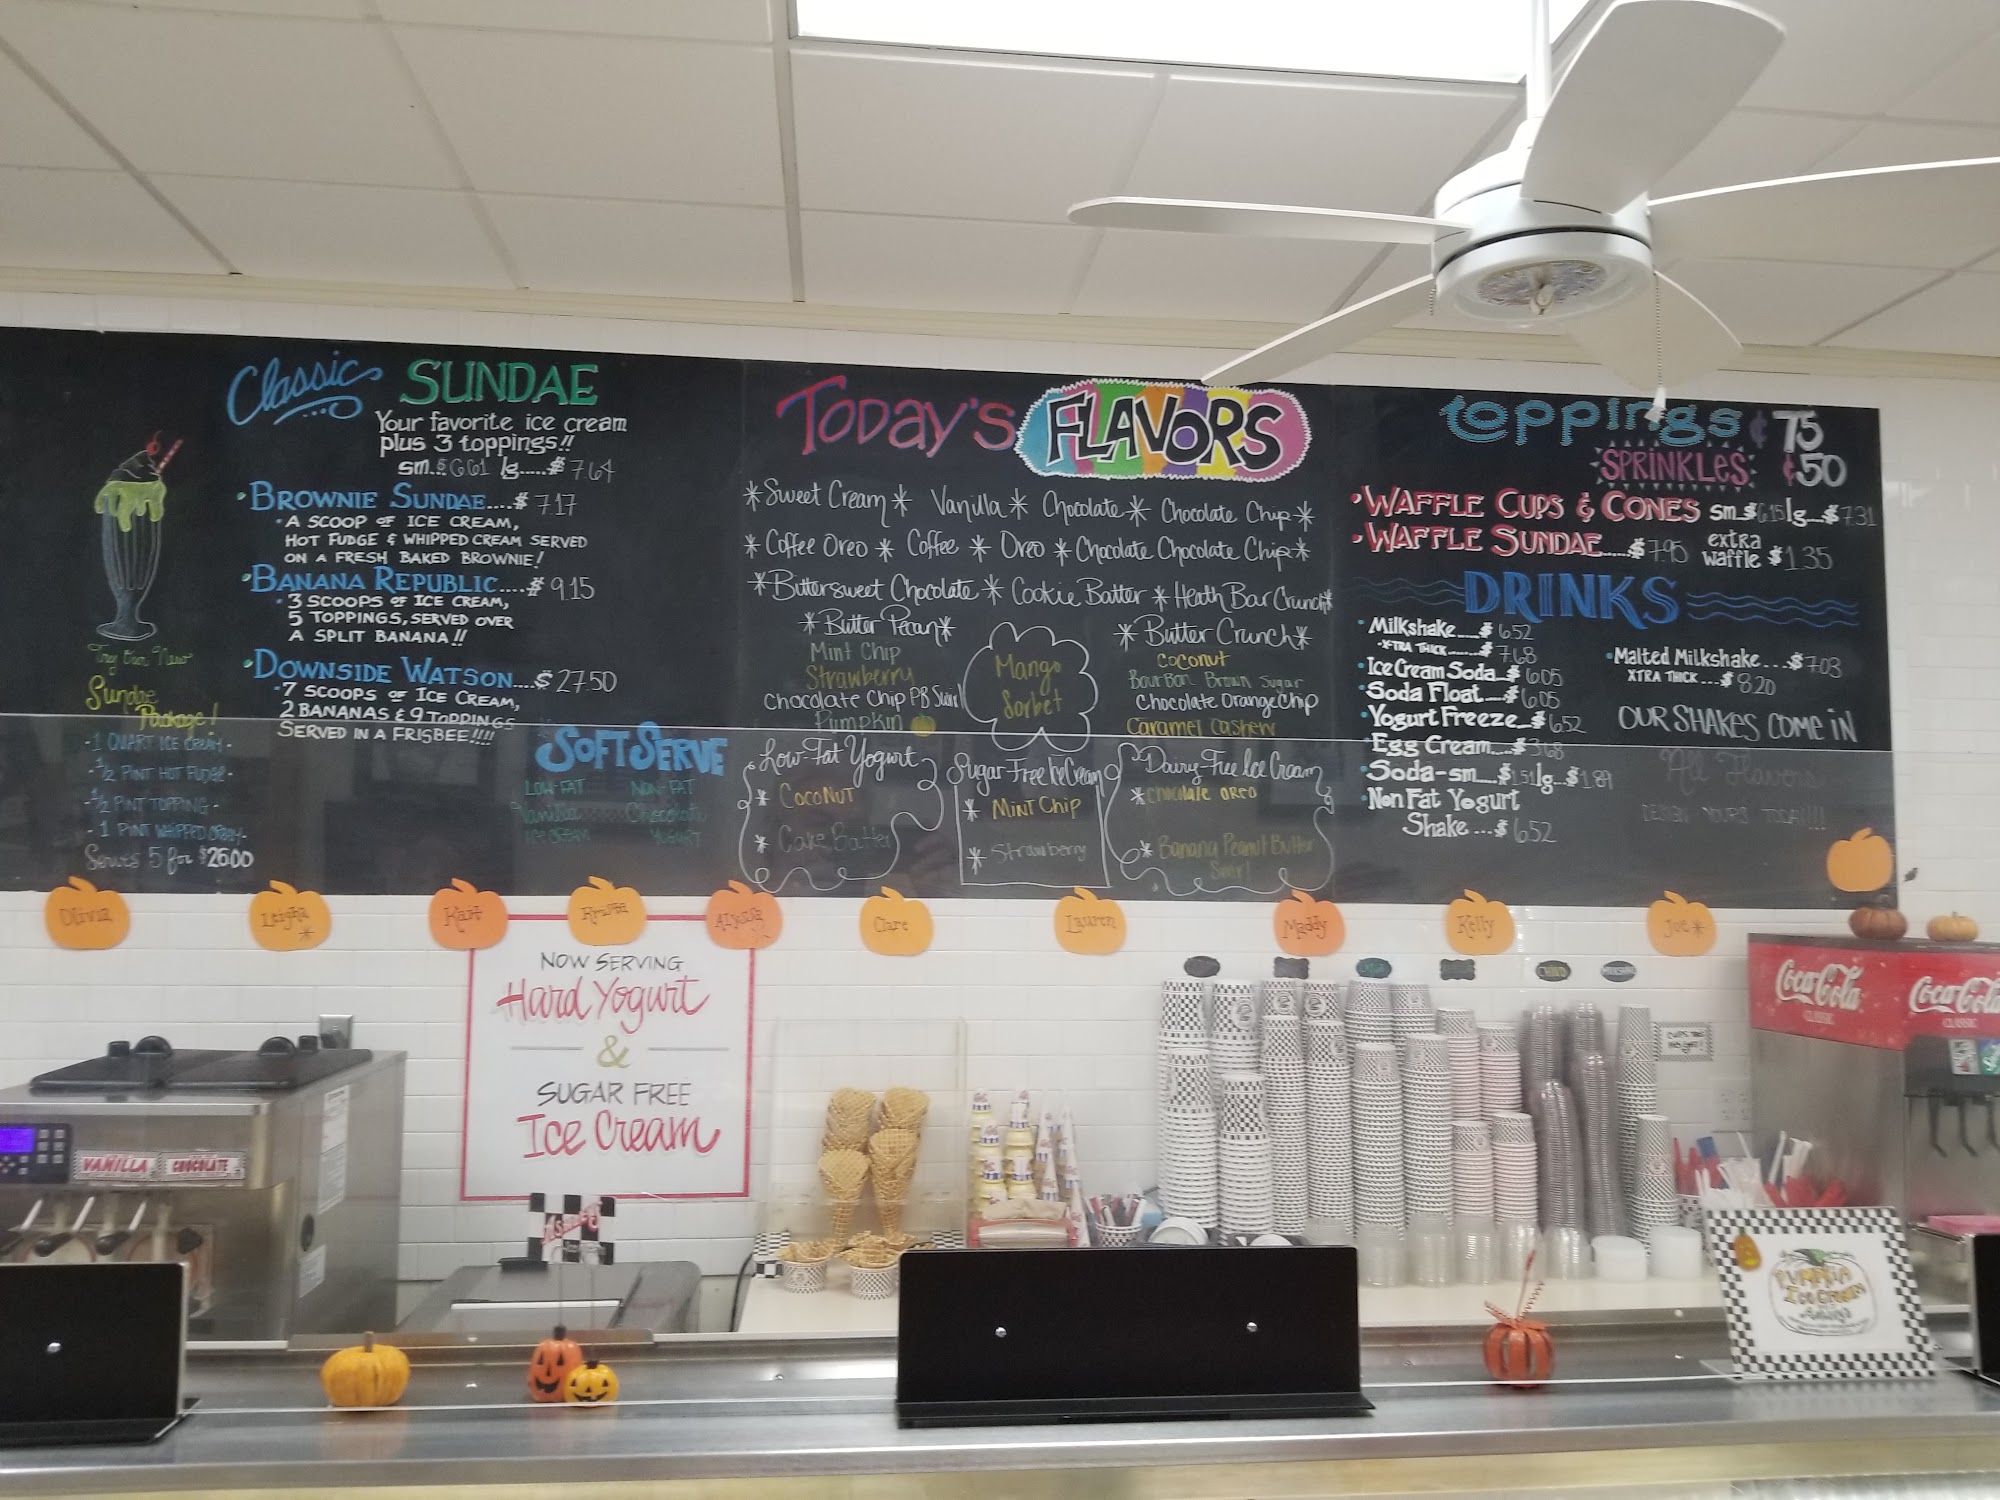 Classic SUNDAE
Your favorite ice cream
plus 3 toppings!!
sm..$6.61 lg.....$7.64
•BROWNIE SUNDAE....$7.17
•A SCOOP OF ICE CREAM,
HOT FUDGE & WHIPPED CREAM SERVED
ON A FRESH BAKED BROWNIE!
•BANANA REPUBLIC....$9.15
•3 SCOOPS OF ICE CREAM,
5 TOPPINGS, SERVED OVER
A SPLIT BANANA!!
•DOWNSIDE WATSON....$27.50
•7 SCOOPS OF ICE CREAM,
2 BANANAS & 9 TOPPINGS
SERVED IN A FRISBEE!!!!
Try Our New
Sundae
Package!
-1 QUART ICE CREAM-
-1/2 PINT HOT FUDGE-
-1/2 PINT TOPPING-
-1 PINT WHIPPED CREAM-
Serves 5 for $26.00
SOFT SERVE
LOW-FAT NON-FAT
Vanilla Chocolate
ICE CREAM YOGURT
TODAY'S FLAVORS
*Sweet Cream* Vanilla* Chocolate* Chocolate Chip*
*Coffee Oreo* Coffee* Oreo* Chocolate Chocolate Chip*
*Bittersweet Chocolate* Cookie Batter* Heath Bar Crunch*
*Butter Pecan* *Butter Crunch*
Mint Chip
Strawberry
Chocolate Chip PB Swirl
Pumpkin
Mango
Sorbet
Coconut
Bourbon Brown Sugar
Chocolate Orange Chip
Caramel Cashew
Low-Fat Yogurt
* Coconut
* Cake Batter
Sugar Free Ice Cream
* Mint Chip
* Strawberry
Dairy-Free Ice Cream
* chocolate oreo
* Banana Peanut Butter
Swirl
toppings ¢75
SPRINKLES ¢50
•WAFFLE CUPS & CONES sm..$6.15 lg..$7.31
•WAFFLE SUNDAE.....$7.95 extra waffle $1.35
DRINKS
•Milkshake.....$6.52
•XTRA THICK........$7.68
•Ice Cream Soda..$6.05
•Soda Float....$6.05
•Yogurt Freeze..$6.52
•Egg Cream....$3.68
•Soda-sm...$1.51 lg...$1.89
•Non Fat Yogurt
Shake...$6.52
•Malted Milkshake...$7.03
XTRA THICK...$8.20
OUR SHAKES COME IN
All Flavors
DESIGN YOURS TODAY!!!!
Olivia
Leigha*
Kait
Krista
Alyssa
Clare
Lauren
Maddy
Kelly
Joe*
NOW SERVING
Hard Yogurt
&
SUGAR FREE
Ice Cream
VANILLA CHOCOLATE
CHILD
Coca-Cola
CLASSIC
Coca-Cola
CLASSIC
PUMPKIN
Ice Cream